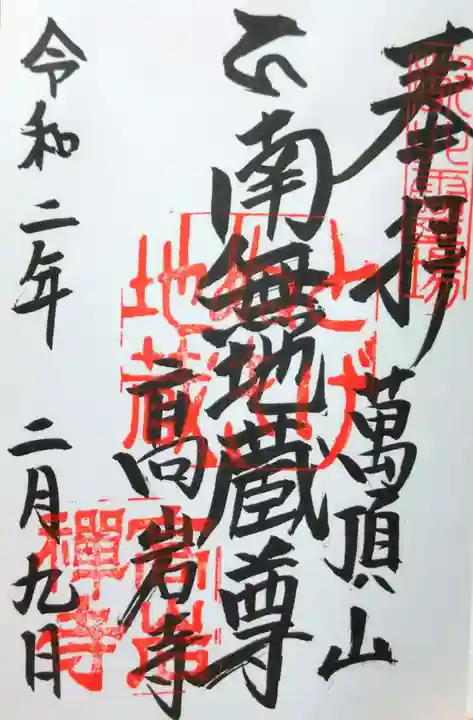 奉拝
萬頂山
南無地蔵尊
高岩寺
令和二年 二月九日
高岩
禅寺